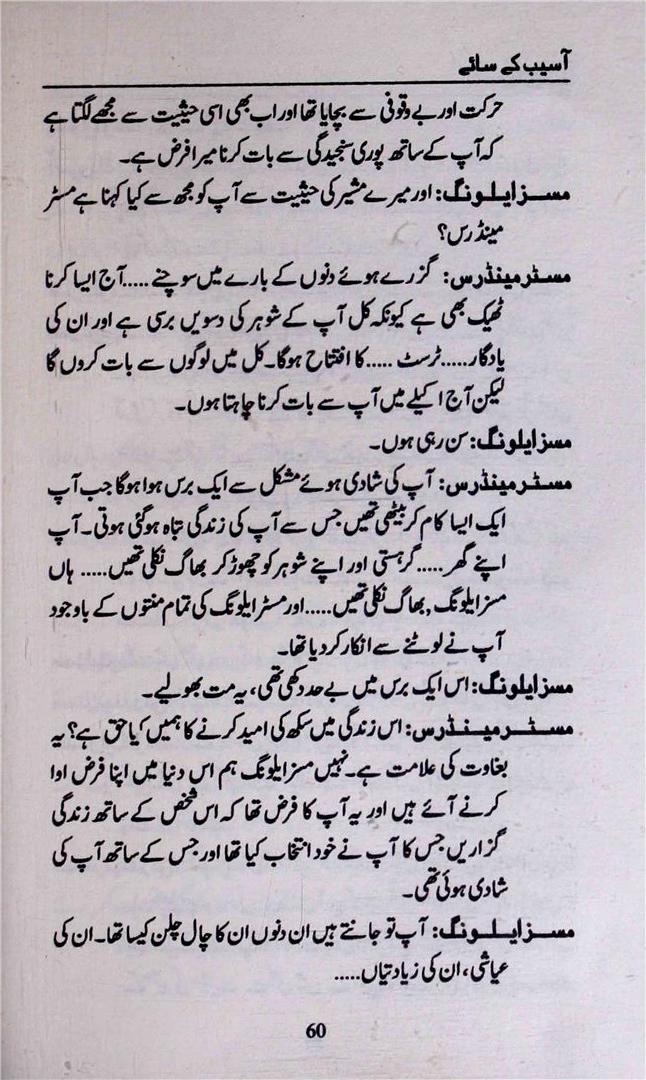 آسیب کے سائے
حرکت اور بے وقوفی سے بچایا تھا اور اب بھی اسی حیثیت سے مجھے لگتا ہے
کہ آپ کے ساتھ پوری سنجیدگی سے بات کرنا میرا فرض ہے۔
مسز ایلونگ: اور میرے مشیر کی حیثیت سے آپ کو مجھ سے کیا کہنا ہے مسٹر
مینڈرس؟
مسٹر مینڈرس: گزرے ہوئے دنوں کے بارے میں سوچنے ..... آج ایسا کرنا
ٹھیک بھی ہے کیونکہ کل آپ کے شوہر کی دسویں برسی ہے اور ان کی
یادگار ..... ٹرسٹ ..... کا افتتاح ہوگا۔ کل میں لوگوں سے بات کروں گا
لیکن آج اکیلے میں آپ سے بات کرنا چاہتا ہوں۔
مسز ایلونگ: سن رہی ہوں۔
مسٹر مینڈرس: آپ کی شادی ہوئے مشکل سے ایک برس ہوا ہوگا جب آپ
ایک ایسا کام کر بیٹھی تھیں جس سے آپ کی زندگی تباہ ہو گئی ہوتی۔ آپ
اپنے گھر ..... گرہستی اور اپنے شوہر کو چھوڑ کر بھاگ نکلی تھیں ..... ہاں
مسز ایلونگ, بھاگ نکلی تھیں ..... اور مسٹر ایلونگ کی تمام منتوں کے باوجود
آپ نے لوٹنے سے انکار کر دیا تھا۔
مسز ایلونگ: اس ایک برس میں بے حد دکھی تھی، یہ مت بھولیے۔
مسٹر مینڈرس: اس زندگی میں سکھ کی امید کرنے کا ہمیں کیا حق ہے؟ یہ
بغاوت کی علامت ہے۔ نہیں مسز ایلونگ ہم اس دنیا میں اپنا فرض اوا
کرنے آئے ہیں اور یہ آپ کا فرض تھا کہ اس شخص کے ساتھ زندگی
گزاریں جس کا آپ نے خود انتخاب کیا تھا اور جس کے ساتھ آپ کی
شادی ہوئی تھی۔
مسز ایلونگ: آپ تو جانتے ہیں ان دنوں ان کا چال چلن کیسا تھا۔ ان کی
عیاشی، ان کی زیادتیاں .....
60